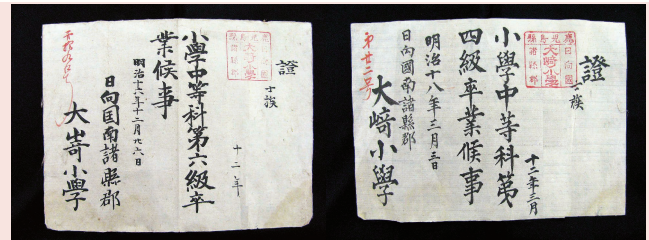 證
士族
十二年
小學中等科第六級卒
業候事
明治十六年十二月廿六日
日向国南諸縣郡
大﨑小學
證
大﨑小學
士族
十二年三月
小學中等科第
四級卒業候事
明治十八年三月三日
日向國南諸縣郡
大﨑小學
第廿二号